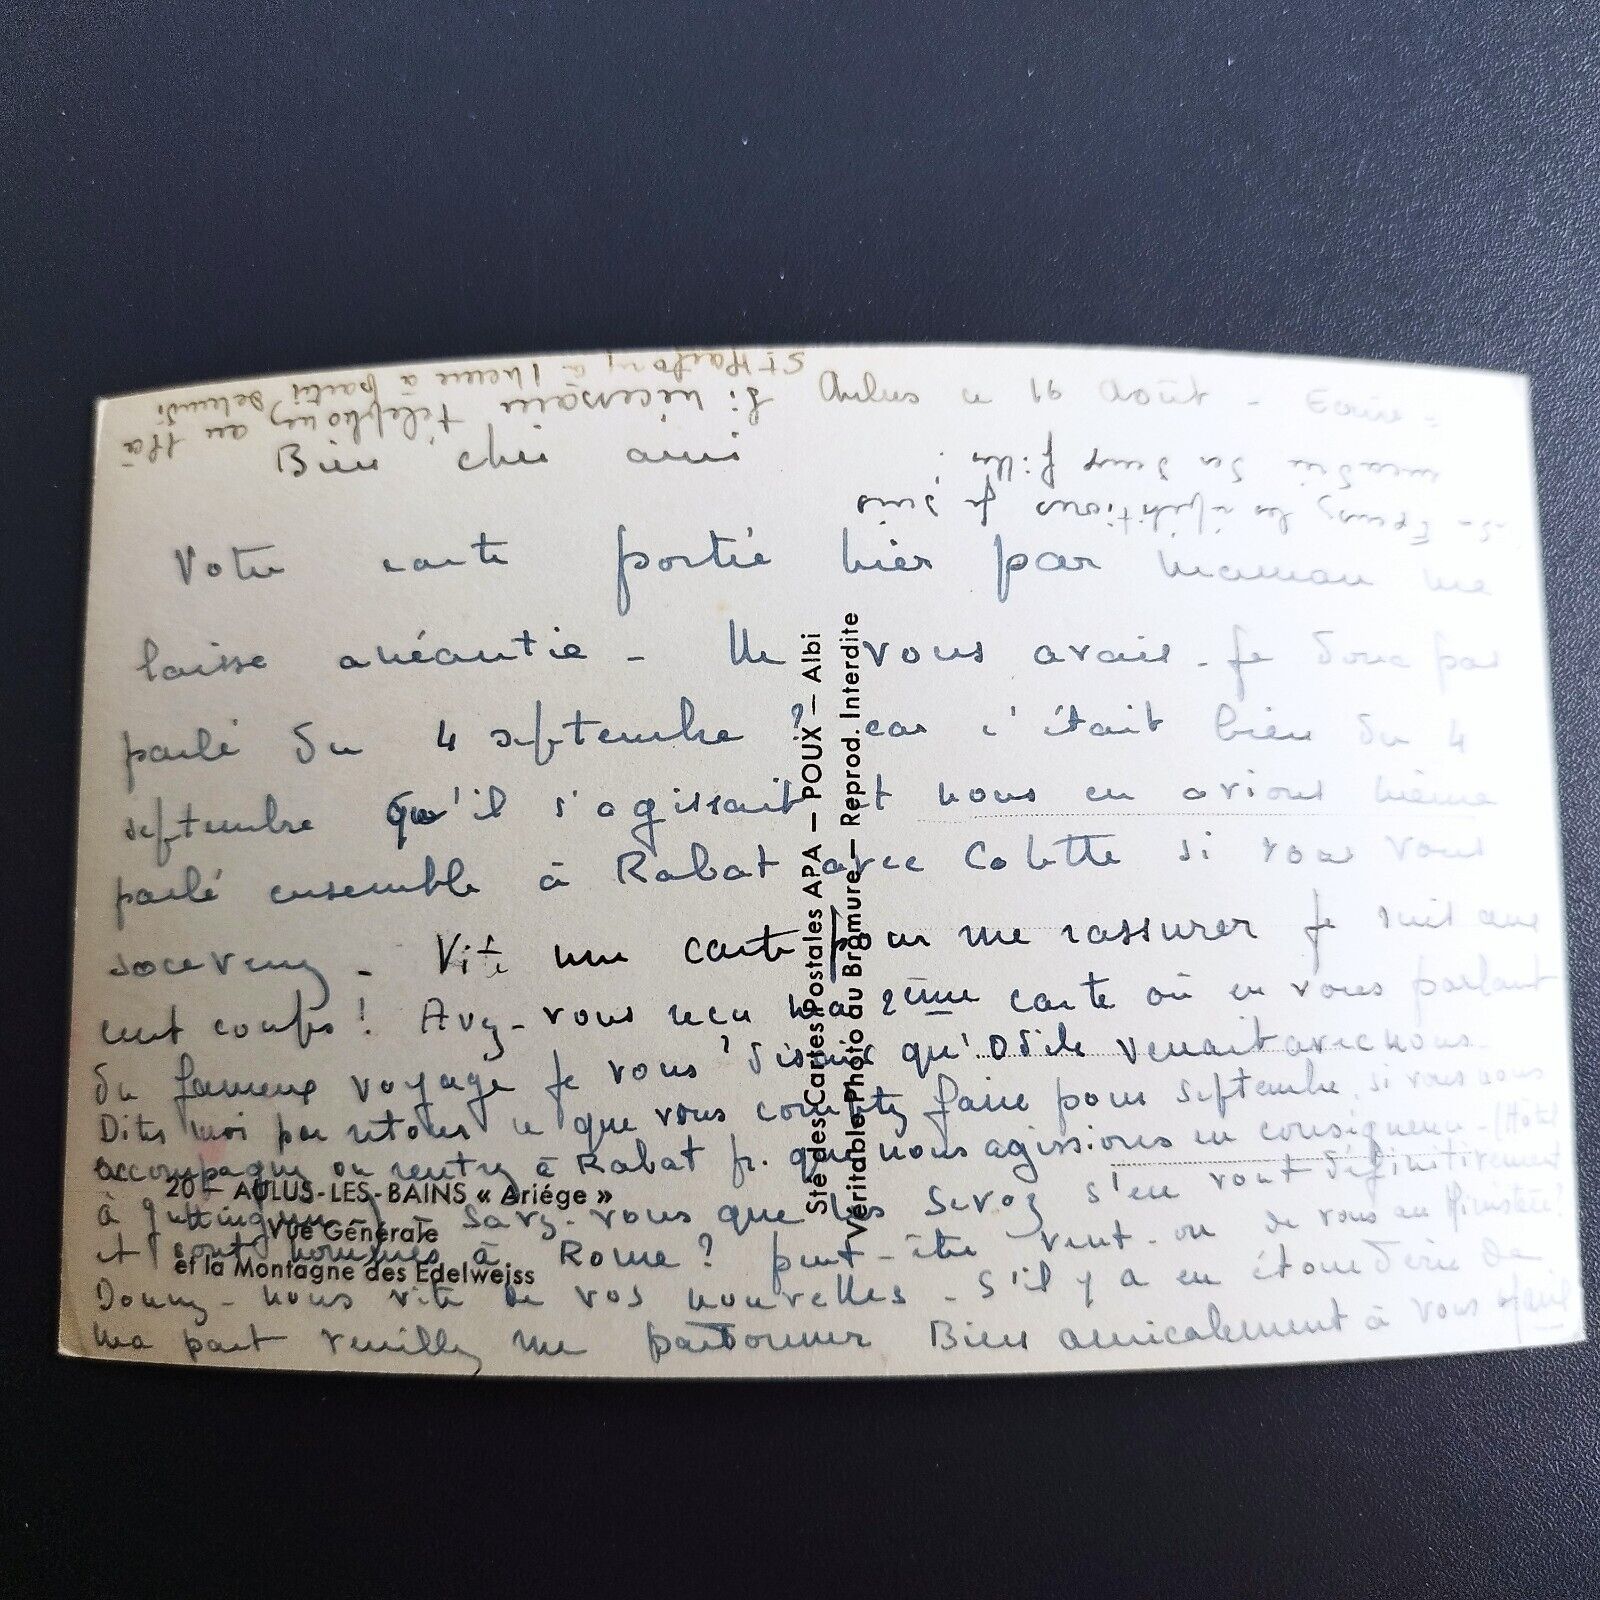 Aulus ce 16 Août -
Bien cher ami
Votre carte portée hier par maman me
laisse anéantie - Ne vous avais-je donc pas
parlé du 4 septembre ? car c'était bien du 4
septembre qu'il s'agissait et nous en avions même
parlé ensemble à Rabat avec Colette si vous vous
souvenez - Vite une carte pour me rassurer je suis aux
cent coups ! Avez-vous reçu ma 2ème carte où en vous parlant
du fameux voyage je vous disais qu'Odile venait avec nous -
Dites moi par retour ce que vous comptez faire pour septembre, si vous nous
accompagnez ou rentrez à Rabat pr. que nous agissions en conséquence - (Hôtel
à - Savez-vous que les s'en vont définitivement
et sont nommés à Rome ? peut-être veut-on de vous au Ministère ?
Donnez-nous vite de vos nouvelles - S'il y a eu étourderie de
ma part veuillez me pardonner Bien amicalement à vous
Si nécessaire téléphonez au 11 à
St à 1 heure à partir de lundi
les répétitions je suis
ses deux filles
20 - AULUS-LES-BAINS « Ariége »
Vue Générale
et la Montagne des Edelweiss
Sté des Cartes Postales APA - POUX - Albi
Véritable Photo au Bromure - Reprod. Interdite